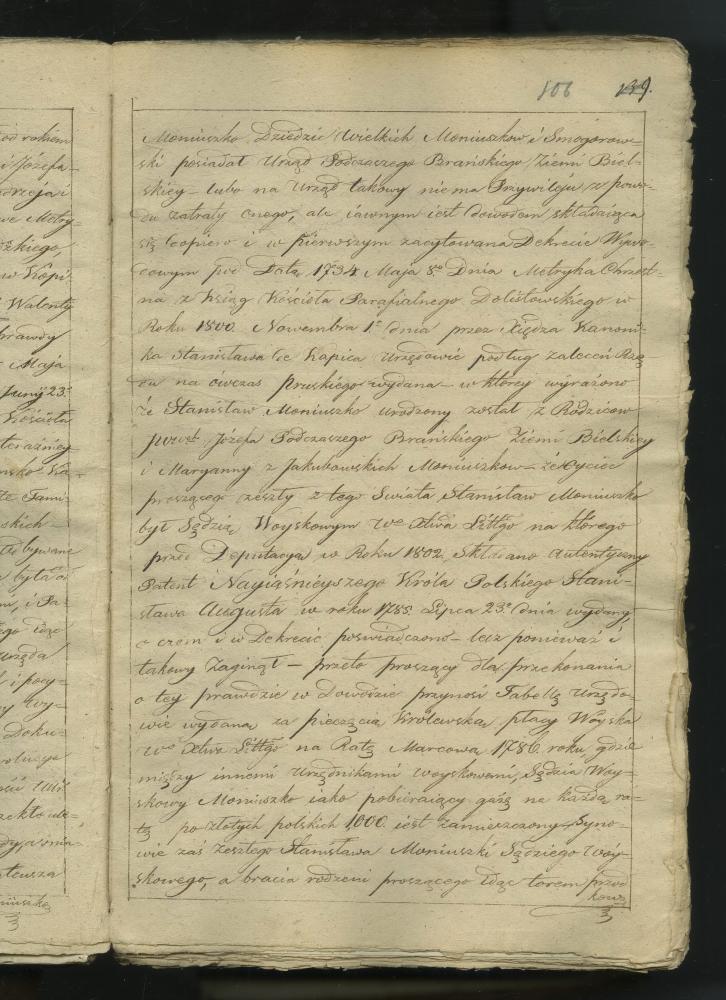 106 139.
Moniuszko Dziedzic Wielkich Moniuszkow i Smogorow-
ski posiadał Urząd Podczaszego Brańskiego Ziemi Biel-
skiey – lubo na Urząd takowy niema Przywileju, z powo-
du zatraty onego, ale iawnym iest dowodem składaiąca
się dopiero i w pierwszym zacytowana Dekrecie Wywo-
dowym pod Datą 1734 Maja 8º Dnia Metryka Chrzest-
na z Ksiąg Kościoła Parafialnego Dolistowskiego w
Roku 1800 Nowembra 1º dnia przez Xiędza Kanoni-
ka Stanisława de Kapica Urzędowie podług zaleceń Rzą-
du na ówczas pruskiego wydana – w którey wyrażono
że Stanisław Moniuszko urodzony został z Rodzicow
Józefa Podczaszego Brańskiego Ziemi Bielskiey
i Maryanny z Jakubowskich Moniuszkow – że Oyciec
proszącego zeszły z tego Swiata Stanisław Moniuszko
był Sędzią Woyskowym Wº Xtwa Littgo na którego
przed Deputacyą w Roku 1802 składano autentyczny
Patent Nayiaśnieyszego Króla Polskiego Stani-
sława Augusta w roku 1785 Lipca 23º dnia wydany
o czem i w Dekrecie poświadczono – lecz ponieważ i
takowy zaginął – przeto proszący dla przekonania
o tey prawdzie w Dowodzie przynosi Tabellę Urzędo-
wie wydaną za pieczęcią Królewską płacy Woyska
Wº Xtwa Littgo na Ratę Marcową 1786 roku, gdzie
między innemi Urzędnikami woyskowemi, Sędzia Woy-
skowy Moniuszko iako pobieraiący gażę na każdą ra-
tę po złotych polskich 1,000 iest zamieszczony – Syno-
wie zaś zeszłego Stanisława Moniuszki Sędziego Woy-
skowego, a bracia rodzeni proszącego idąc torem przod
kow